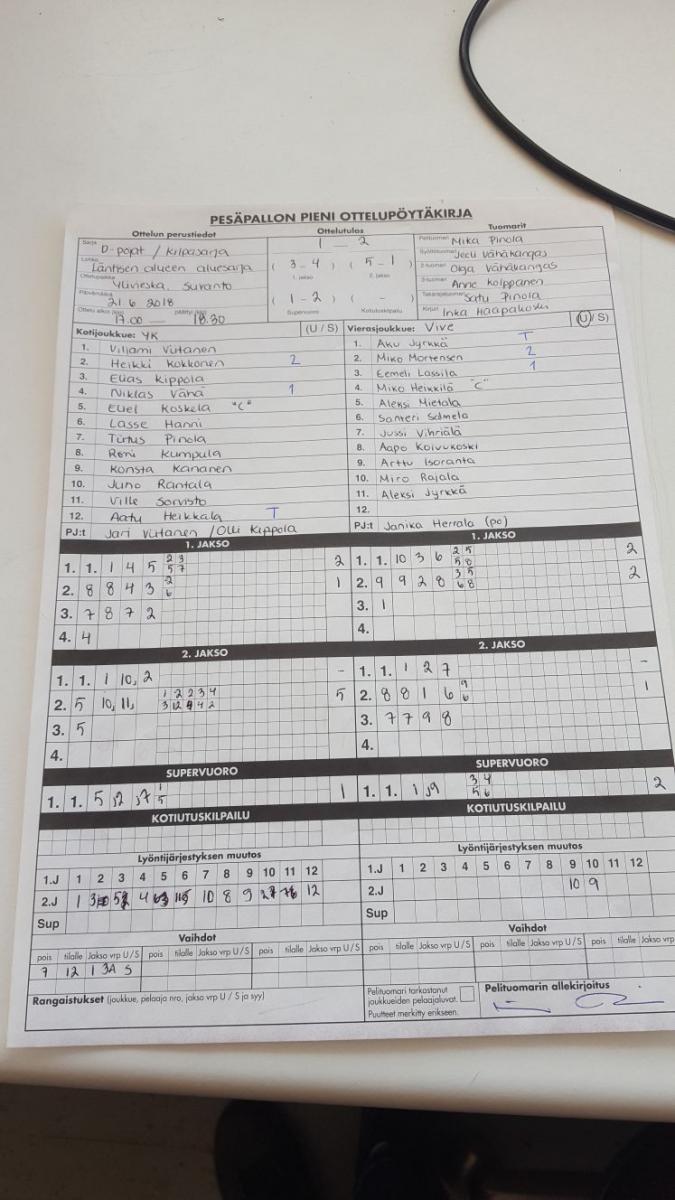 PESÄPALLON PIENI OTTELUPÖYTÄKIRJA
Ottelun perustiedot
Ottelutulos
Tuomarit
Sarja D-pojat / Kilpasarja
1 - 2
Pelituomari Mika Pinola
Lohko Läntisen alueen aluesarja
( 3 - 4 ) ( 5 - 1 )
Syöttötuomari Jeeli Vähäkangas
1. jakso 2. jakso
2-tuomari Olga Vähäkangas
Ottelupaikka Ylivieska, Suvanto
3-tuomari Anne Kolppanen
Päivämäärä 21 6 2018
( 1 - 2 ) ( - )
Takarajatuomari Satu Pinola
Ottelu alkoi (klo) 17.00 — päättyi (klo) 18.30
Supervuoro Kotiutuskilpailu
Kirjuri Inka Haapakoski
Kotijoukkue: YK (U / S)
Vierasjoukkue: Vive (U / S)
1. Viljami Viitanen
2. Heikki Kokkonen 2
3. Elias Kippola
4. Niklas Vähä 1
5. Eliel Koskela "C"
6. Lasse Hanni
7. Tiitus Pinola
8. Remi Kumpula
9. Konsta Kananen
10. Juho Rantala
11. Ville Sorvisto
12. Aatu Heikkala T
PJ:t Jari Viitanen / Olli Kippola
1. Aku Jyrkkä T
2. Miko Mortensen 2
3. Eemeli Lassila 1
4. Miko Heikkilä "C"
5. Aleksi Mietala
6. Santeri Salmela
7. Jussi Vihriälä
8. Aapo Koivukoski
9. Arttu Isoranta
10. Miro Rajala
11. Aleksi Jyrkkä
12.
PJ:t Janika Herrala (po)
1. JAKSO
1. 1. 1 4 5 2 3 2
5 7
2. 8 8 4 3 2 1
6
3. 7 8 7 2
4. 4
1. JAKSO
1. 1. 10 3 6 2 5 2
5 8
2. 9 9 2 8 3 5 2
6 8
3. 1
4.
2. JAKSO
1. 1. 1 10, 2 -
2. 5 10, 11, 1 2 2 3 4 5
3 12 4 4 2
3. 5
4.
2. JAKSO
1. 1. 1 2 7 -
2. 8 8 1 6 9 1
6
3. 7 7 9 8
4.
SUPERVUORO
1. 1. 5, 2, 7 1 1
5
SUPERVUORO
1. 1. 1, 9 3 4 2
5 6
KOTIUTUSKILPAILU
KOTIUTUSKILPAILU
Lyöntijärjestyksen muutos
1.J 1 2 3 4 5 6 7 8 9 10 11 12
2.J 1 4 10 8 9 12
Sup
Lyöntijärjestyksen muutos
1.J 1 2 3 4 5 6 7 8 9 10 11 12
2.J 10 9
Sup
Vaihdot
pois tilalle Jakso vrp U / S pois tilalle Jakso vrp U / S pois tilalle Jakso vrp U / S
7 12 1 3A S
Vaihdot
pois tilalle Jakso vrp U / S pois tilalle Jakso vrp U / S pois tilalle Jakso vrp
Rangaistukset (joukkue, pelaaja nro, jakso vrp U / S ja syy)
Pelituomari tarkastanut
joukkueiden pelaajaluvat.
Puutteet merkitty erikseen.
Pelituomarin allekirjoitus